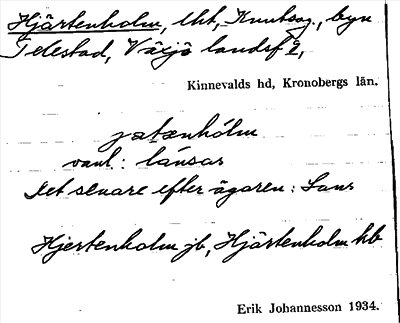 Hjärtenholm, lht, Knutsag., byn
Telestad, Växjö landsf 2,
Kinnevalds hd, Kronobergs län.
jatænhólm
vanl: lánsas
Det senare efter ägaren: Lans
Hjertenholm jb, Hjärtenholm kb
Erik Johannesson 1934.